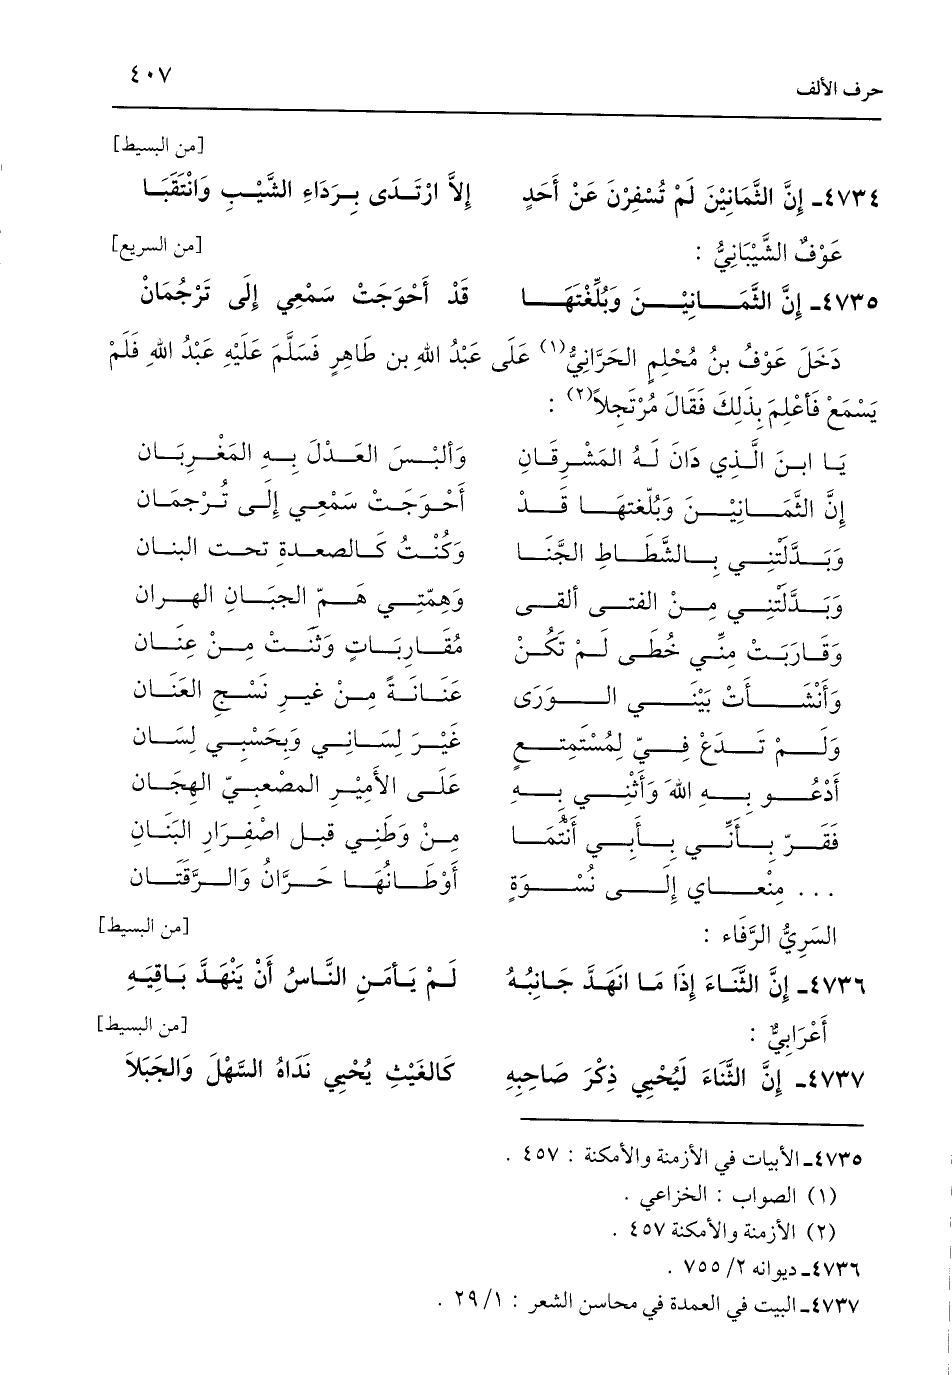 حرف الألف ٤٠٧
[من البسيط]
٤٧٣٤ـ إِنَّ الثَّمَانِيْنَ لَمْ تُسْفِرْنَ عَنْ أَحَدٍ إِلاَّ ارْتَدَى بِرِدَاءِ الشَّيْبِ وَانْتَقَبَا
عَوْفٌ الشَّيْبَانِيُّ : [من السريع]
٤٧٣٥ـ إِنَّ الثَّمَانِيْنَ وَبُلِّغْتَهَا قَدْ أَحْوَجَتْ سَمْعِي إِلَى تَرْجُمَانْ
دَخَلَ عَوْفُ بنُ مُحْلِمٍ الحَرَّانِيُّ(١) عَلَى عَبْدُ اللهِ بن طَاهِرٍ فَسَلَّمَ عَلَيْهِ عَبْدُ اللهِ فَلَمْ
يَسْمَعْ فَأُعْلِمَ بِذَلِكَ فَقَالَ مُرْتَجِلاً(٢) :
يَا ابنَ الَّذِي دَانَ لَهُ المَشْرِقَانِ وَأَلبْسَ العَدْلَ بِهِ المَغْرِبَان
إِنَّ الثَّمَانِيْنَ وَبُلّغتهَا قَدْ أَحْوَجَتْ سَمْعِي إِلَى تُرْجمَان
وَبَدَّلَتْنِي بِالشَّطَاطِ الحَّنَا وَكُنْتُ كَالصعدة تحت البنان
وَبَدَّلَتْنِي مِنْ الفتى ألقى وَهِمّتِي هَمّ الجبَانِ الهِران
وَقَارَبَتْ مِنِّي خُطَى لَمْ تَكُنْ مُقَارِبَاتٍ وَثَنَتْ مِنْ عِنَان
وَأَنْشَأَتْ بَيْنِي الوَرَى عَنَانَةً مِنْ غيرِ نَسْجِ العَنَان
وَلَمْ تَدَعْ فِيّ لِمُسْتَمتِعٍ غَيْرَ لِسَانِي وَبِحَسْبِي لِسَان
أَدْعُو بِهِ اللهَ وَأَثْنِي بِهِ عَلَى الأَمِيْرِ المصْعبِيّ الهِجَان
فَقَرّ بِأنِّي بِأَبِي أَنْتُمَا مِنْ وَطَنِي قبل اصْفِرَارِ البَنَانِ
... مِنْعاي إِلَى نُسْوَةٍ أَوْطَانُهَا حَرَّانُ وَالرَّقَتَان
السَرِيُّ الرَّفَاء : [من البسيط]
٤٧٣٦ـ إِنَّ الثَّنَاءَ إِذَا مَا انْهَدَّ جَانِبُهُ لَمْ يَأمَنِ النَّاسُ أَنْ يَنْهَدَّ بَاقِيَهِ
أَعْرَابِيٌّ : [من البسيط]
٤٧٣٧ـ إِنَّ الثَّنَاءَ لَيُحْيِي ذِكْرَ صَاحِبِهِ كَالغَيْثِ يُحْيِي نَدَاهُ السَّهْلَ وَالجَبَلاَ
٤٧٣٥ـ الأبيات في الأزمنة والأمكنة : ٤٥٧ .
(١) الصواب : الخزاعي .
(٢) الأزمنة والأمكنة ٤٥٧ .
٤٧٣٦ـ ديوانه ٢/ ٧٥٥ .
٤٧٣٧ـ البيت في العمدة في محاسن الشعر : ١/ ٢٩ .